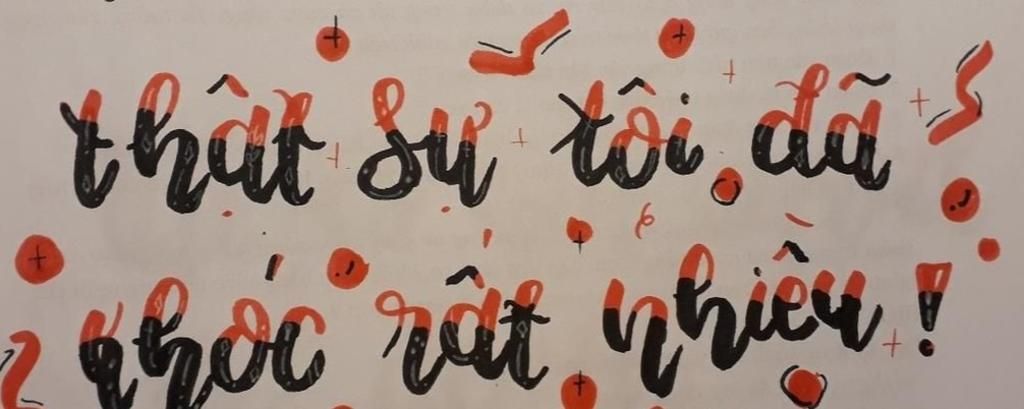 thật sự tôi đã
khóc rất nhiều!